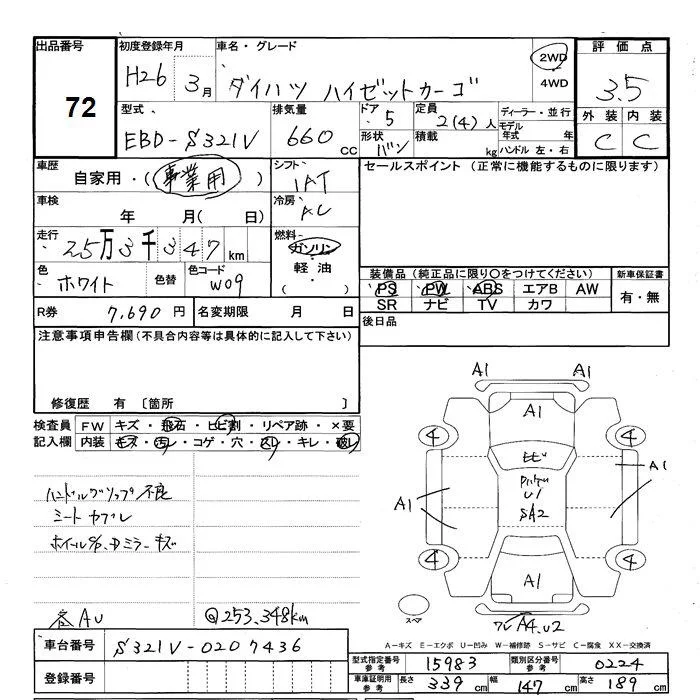 出品番号
72
初度登録年月
H26 3月
車名・グレード
ダイハツ ハイゼットカーゴ
2WD
4WD
評価点
3.5
外装 内装
C C
型式
EBD-S321V
排気量
660 CC
ドア
5
形状
バン
定員
2(4)人
積載
kg
ディーラー・並行
モデル年式 年
ハンドル 左・右
車歴
自家用・(事業用)
シフト
IAT
車検
年 月(日)
冷房
AC
走行
25万3千347km
燃料
ガソリン
軽油
( )
色
ホワイト
色替
色コード
W09
R券
7,690円
名変期限 月 日
セールスポイント(正常に機能するものに限ります)
装備品(純正品に限り〇をつけてください)
PS PW ABS エアB AW
SR ナビ TV カワ
新車保証書
有・無
後日品
注意事項申告欄(不具合内容等は具体的に記入して下さい)
修復歴 有〔箇所 〕
検査員記入欄
FW キズ・飛石・ヒビ割・リペア跡・×要
内装 キズ・汚レ・コゲ・穴・スレ・キレ・破レ
ハンドルグリップ不良
シートカブレ
ホイールC/P、Dミラーキズ
各AU
@253.348km
A1 A1
A1
4 4
A1
A1
U1
SA2
A1
4 4
スペア
A4.U2
A-キズ E-エクボ U-凹み W-補修跡 S-サビ C-腐食 XX-交換済
車台番号
S321V-0207436
登録番号
型式指定番号 参考
15983
類別区分番号 参考
0224
車庫証明用 参考
長さ 339cm 幅 147cm 高さ 189cm